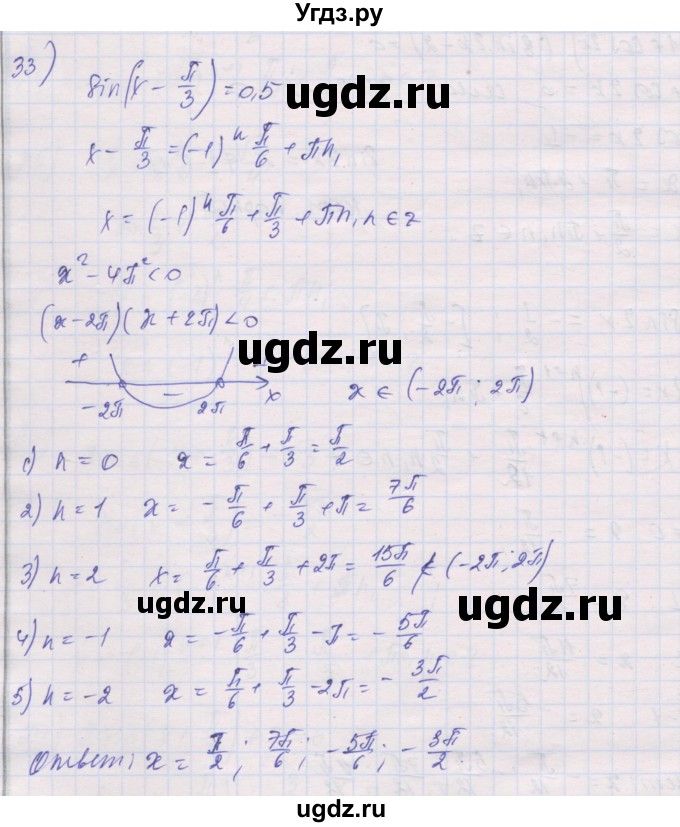 Угдз.ру
33)
sin(x − π/3) = 0,5
ugdz.ru
x − π/3 = (−1)ⁿ π/6 + πn,
x = (−1)ⁿ π/6 + π/3 + πn, n ∈ z
x² − 4π² < 0
(x − 2π)(x + 2π) < 0
ugdz.ru
+ − +
−2π 2π x
x ∈ (−2π; 2π)
1) n = 0 x = π/6 + π/3 = π/2
ugdz.ru
2) n = 1 x = −π/6 + π/3 + π = 7π/6
3) n = 2 x = π/6 + π/3 + 2π = 15π/6 ∉ (−2π; 2π)
ugdz.ru
4) n = −1 x = −π/6 + π/3 − π = −5π/6
5) n = −2 x = π/6 + π/3 − 2π = −3π/2
ugdz.ru
Ответ: x = π/2; 7π/6; −5π/6; −3π/2
ugdz.ru